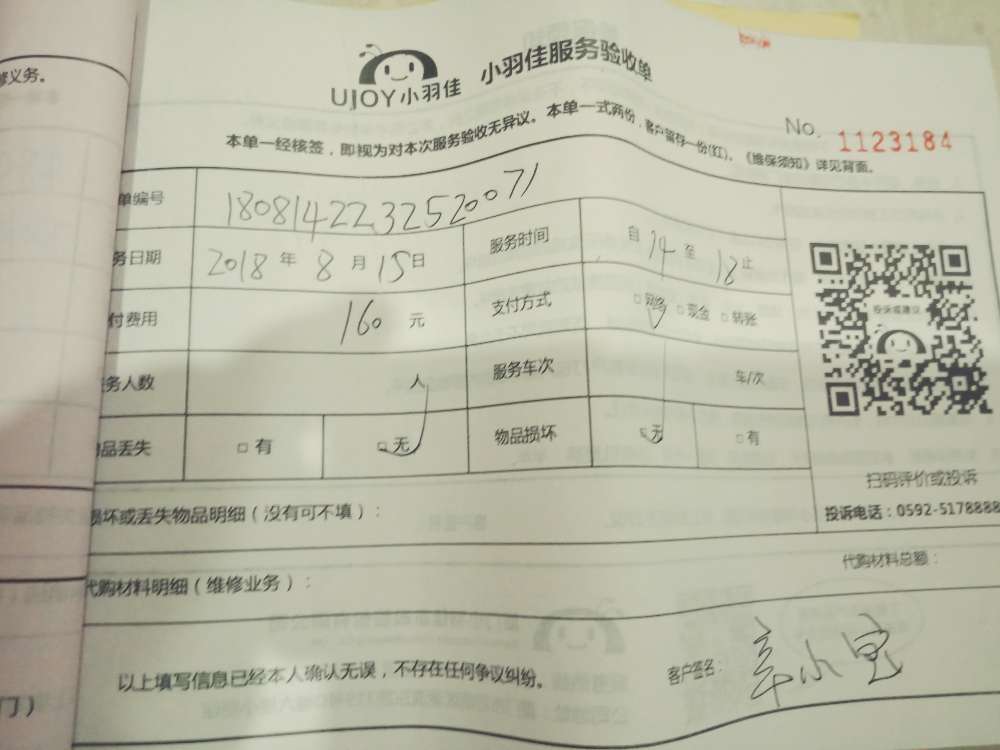 修义务。
UJOY小羽佳 小羽佳服务验收单
No. 1123184
本单一经核签，即视为对本次服务验收无异议。本单一式两份，客户留存一份(红)。《维保须知》详见背面。
单编号 1808142232520071
务日期 2018 年 8 月 15 日 服务时间 自 14 至 18 止
付费用 160 元 支付方式 □ 网络 □ 现金 □ 转账
务人数 人 服务车次 车/次
品丢失 □ 有 □ 无 物品损坏 □ 无 □ 有
投诉或建议
扫码评价或投诉
投诉电话：0592-5178888
损坏或丢失物品明细（没有可不填）：
代购材料明细（维修业务）： 代购材料总额：
以上填写信息已经本人确认无误，不存在任何争议纠纷。 客户签名： 辛小宝
门）